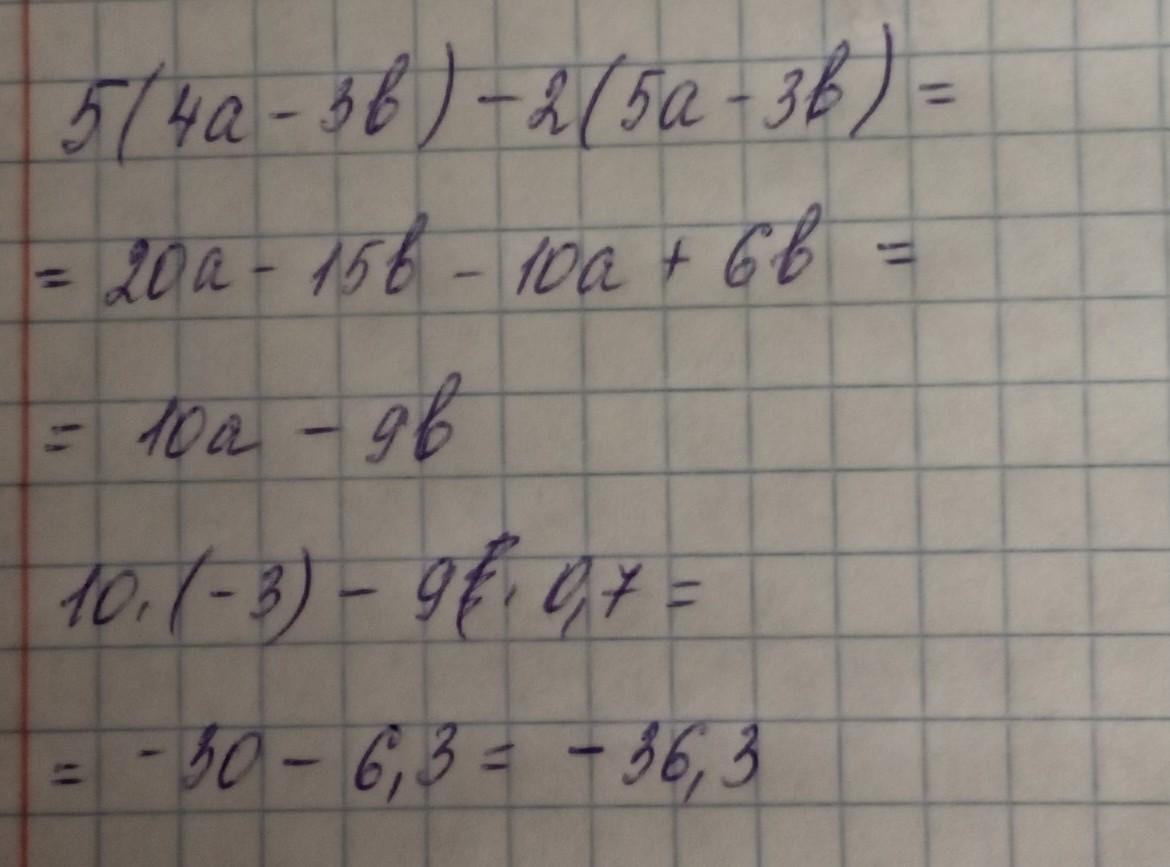 5(4a - 3b) - 2(5a - 3b) =
= 20a - 15b - 10a + 6b =
= 10a - 9b
10 · (-3) - 9 · 0,7 =
= -30 - 6,3 = -36,3